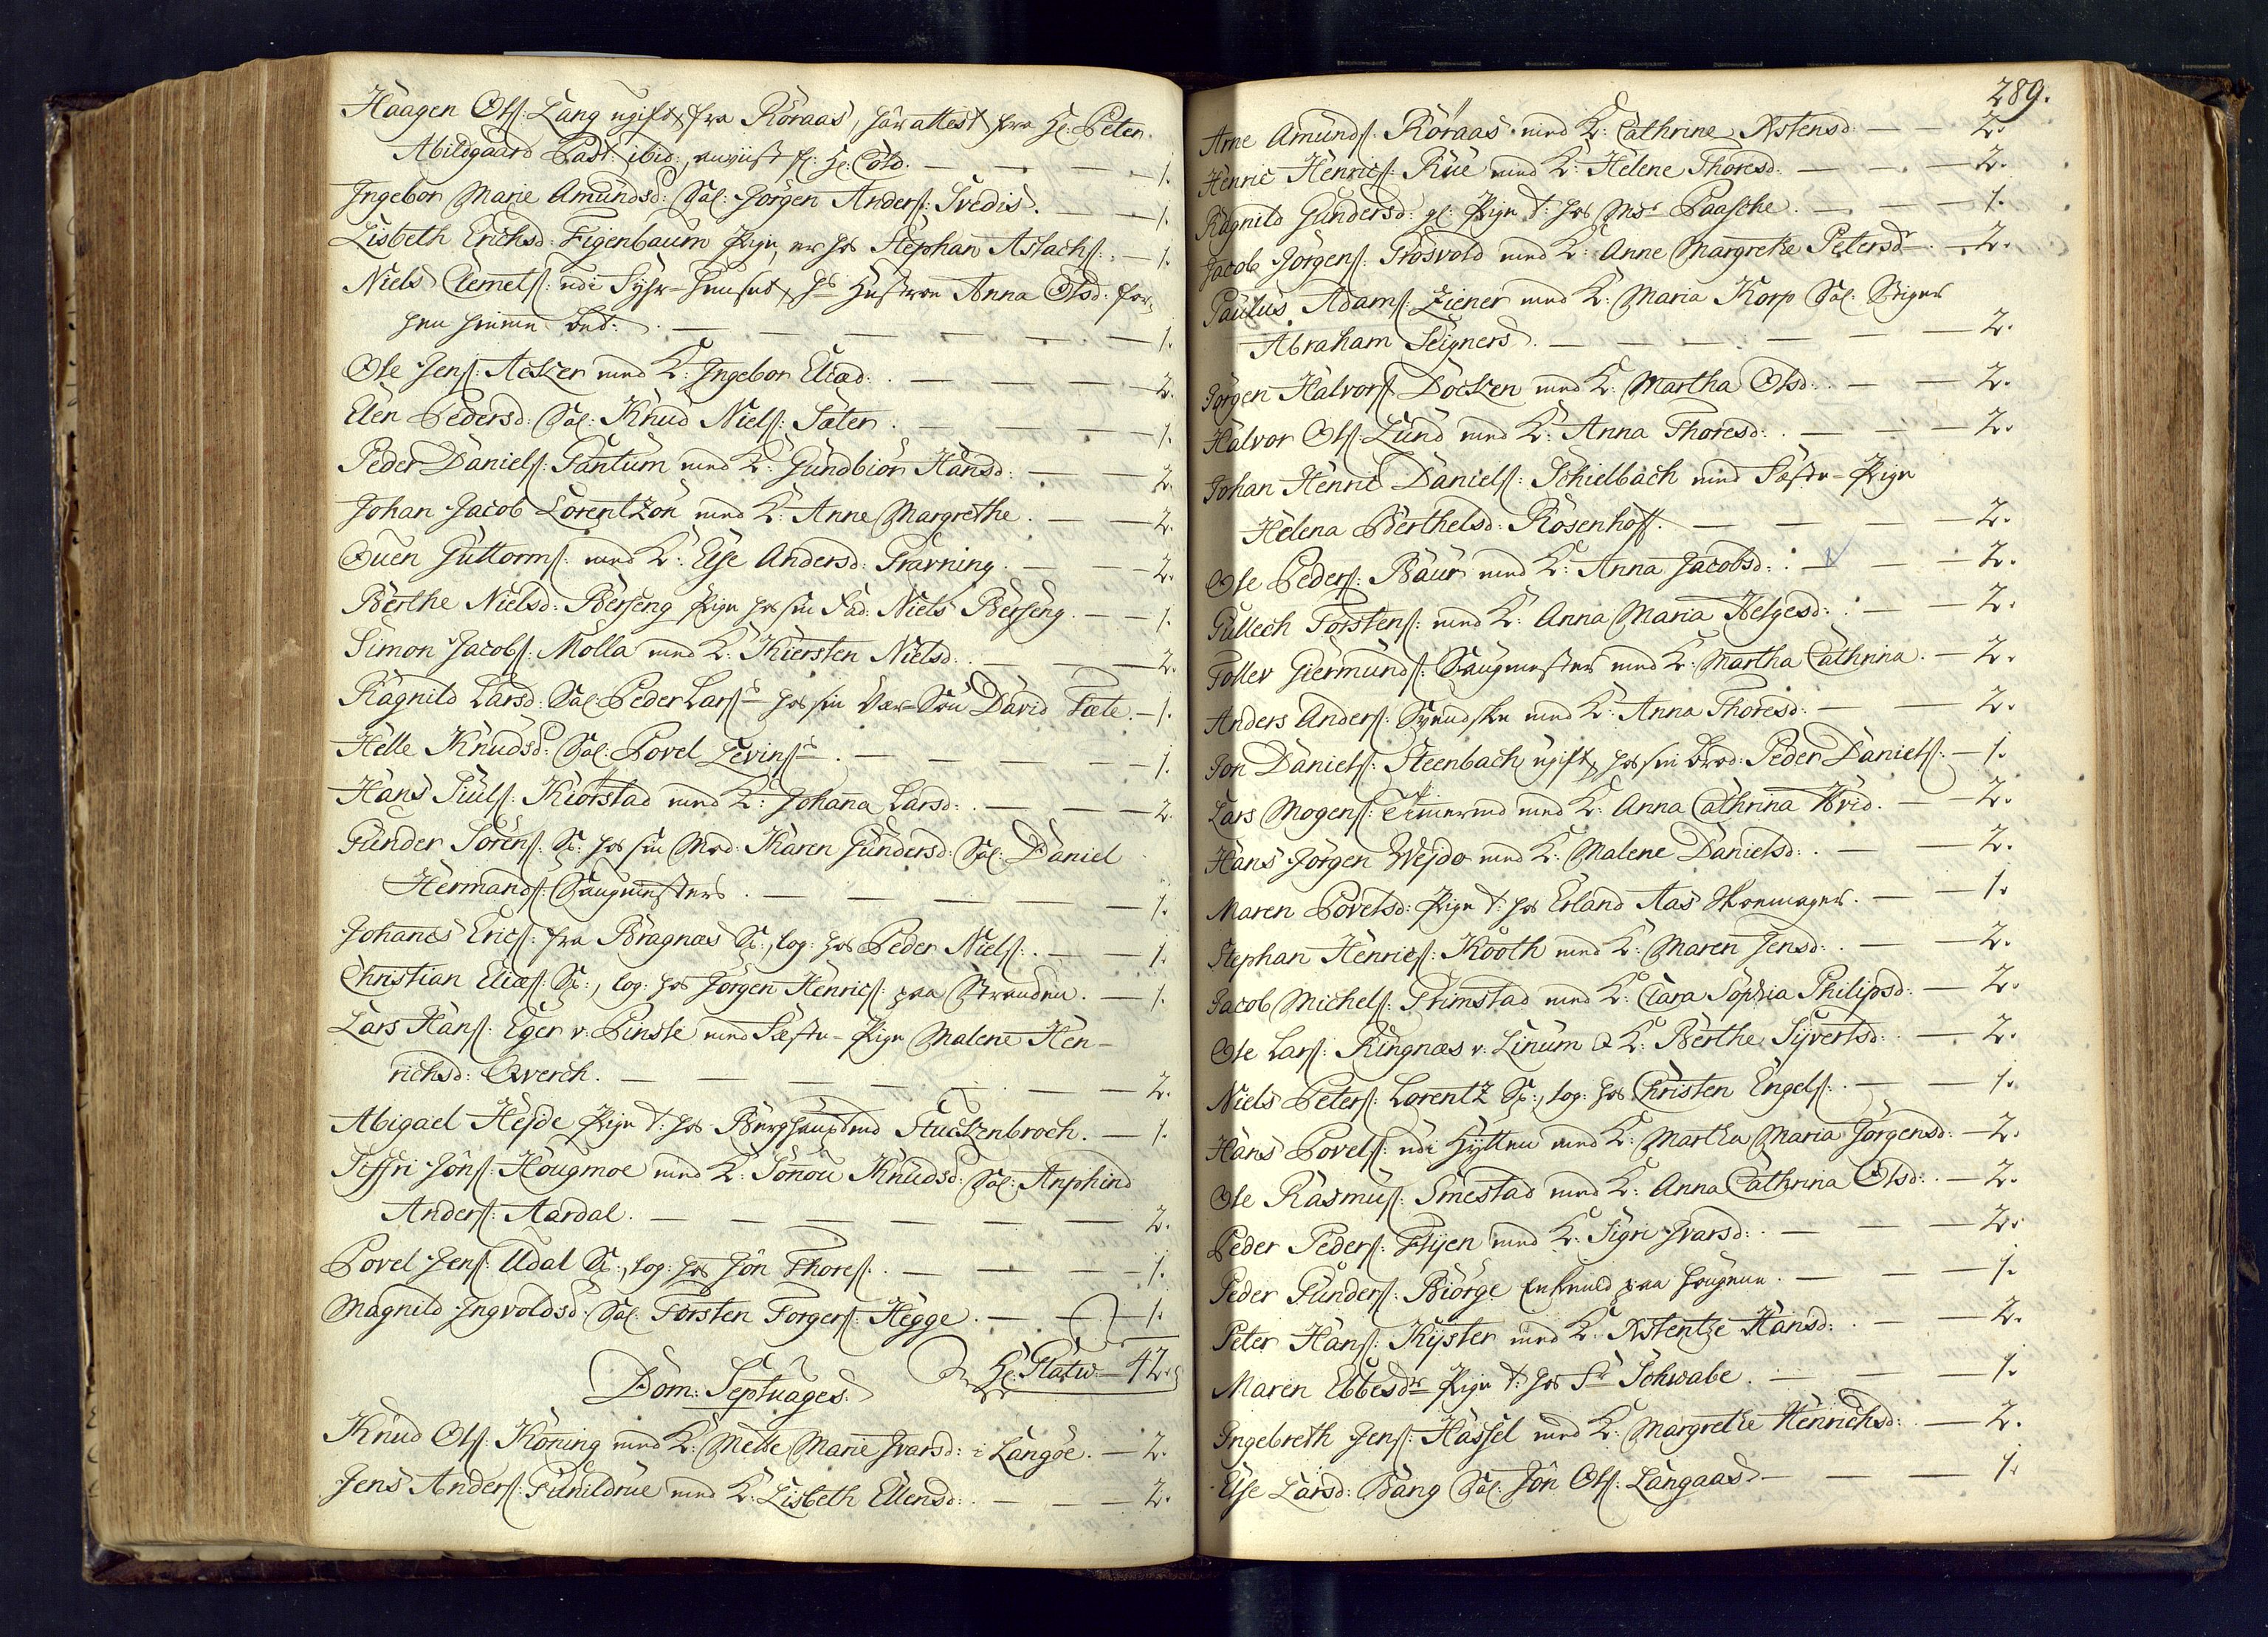 Haagen Ols: Lang ugift fra Röraas, har attest fra Hr: Peter
Abildgaard Past: ibid: anviist fr: Hr: Cold. — 1.
Ingebor Marie Amundsd: Sal: Jörgen Anders: Svedis. — 1.
Lisbeth Erichsd: Figenbaum Pige, er hos Stephan Aslachs: — 1.
Niels Clemets: udi Fyhr-Huuset, hs Hustroe Anna Olsd: for
hen hiemme bet: — 1.
Ole Jens: Acker med K: Ingebor Eliæd: — 2.
Elen Pedersd: Sal: Knud Niels: Sæter. — 1.
Peder Daniels: Fantum med K: Gundbiör Hansd: — 2.
Johan Jacob Lorentzon med K: Anne Margrethe. — 2.
Ouen Guttorms: med K: Else Andersd: Gravning. — 2.
Berthe Nielsd: Berseng Pige hos sin Fad: Niels Berseng. — 1.
Simon Jacobs: Molla med K: Kiersten Nielsd. — 2.
Ragnild Larsd: Sal: Peder Lars: hos sin Vær-Sön David Fæte. — 1.
Helle Knudsd: Sal: Povel Levins: — 1.
Hans Juuls: Kiorstad med K: Johana Larsd: — 2.
Gunder Sörens: S: hos sin Mod: Karen Gundersd: Sal: Daniel
Hermands: Saugmesters. — 1.
Johanes Erics: fra Bragnæs S:, log: hos Peder Niels: — 1.
Christian Eliæs: S:, log: hos Jörgen Henrics: paa Stranden. — 1.
Lars Hans: Eger v: Pinsle med Fæste-Pige Malene Hen-
richsd: Qverch. — 2.
Abigael Hejde Pige t: hos Berghauptmd Stuckenbroch. — 1.
Siffri Jöns: Hougmoe med K: Sönou Knudsd: Sal: Anphind
Anders: Aardal. — 2.
Povel Jens: Udal S:, log: hos Jön Thores: — 1.
Magnild Ingvoldsd: Sal: Torsten Torgers: Hegge. — 1.
Hr: Platw: — 42.
Dom: Septuages:
Knud Ols: Köning med K: Mette Marie Ivarsd: i Langöe. — 2.
Jens Anders: Funildrue med K: Lisbeth Ellensd: — 2.
289.
Arne Amunds: Röraas med K: Cathrine Astensd: — 2.
Henric Henrics: Rue med K: Helene Thoresd: — 2.
Ragnild Gundersd: gl: Pige t: hos Msr Paasche. — 1.
Jacob Jörgens: Grosvold med K: Anne Margrethe Petersdr — 2.
Paulus Adams: Ziener med K: Maria Korp Sal: Stiger
Abraham Seigners. — 2.
Jörgen Halvors: Docken med K: Martha Olsd: — 2.
Halvor Ols: Lund med K: Anna Thoresd: — 2.
Johan Henric Daniels: Schielbach med Fæste-Pige
Helena Berthelsd: Rosenhoff. — 2.
Ole Peders: Baur med K: Anna Jacobsd: — 2.
Gullech Torstens: med K: Anna Maria Helgesd: — 2.
Tollev Giermunds: Saugmester med K: Martha Cathrina. — 2.
Anders Anders: Svendske med K: Anna Thoresd: — 2.
Jon Daniels: Steenbach ugift, hos sin Brod: Peder Daniels: — 1.
Lars Mogens: Timermd med K: Anna Cathrina Hvid. — 2.
Hans Jörgen Wejdo med K: Malene Danielsd: — 2.
Maren Povelsd: Pige t: hos Erland Aas Skoemager. — 1.
Stephan Henrics: Kooth med K: Maren Jensd: — 2.
Jacob Michels: Grimstad med K: Clara Sophia Philipsd: — 2.
Ole Lars: Ringnæs v: Linum & K: Berthe Syvertsd: — 2.
Niels Peters: Lorentz S:, log: hos Christen Engels: — 1.
Hans Povels: udi Hytten med K: Martha Maria Jörgensd: — 2.
Ole Rasmus: Smestad med K: Anna Cathrina Olsd: — 2.
Peder Peders: Flyen med K: Sigri Ivarsd: — 2.
Peder Gunders: Biörge Enkemd paa Hougene. — 1.
Peter Hans: Kyster med K: Astentze Hansd: — 2.
Maren Ebbesdr Pige t: hos Sr Schwabe. — 1.
Ingebreth Jens: Hassel med K: Margrethe Henrichsd: — 2.
Else Larsd: Bang Sal: Jön Ols: Langaas. — 1.